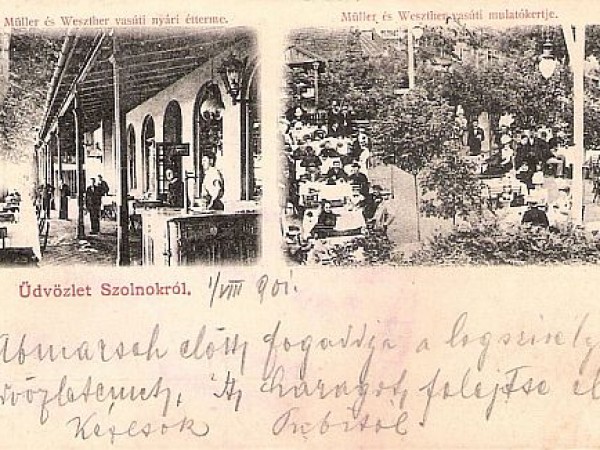 Müller és Weszther vasúti nyári étterme.
Müller és Weszther vasúti mulatókertje.
Üdvözlet Szolnokról.
1/VIII 901.
Abmarsch előtt fogadja a legszivély
üdvözletemet, A haragot felejtse el